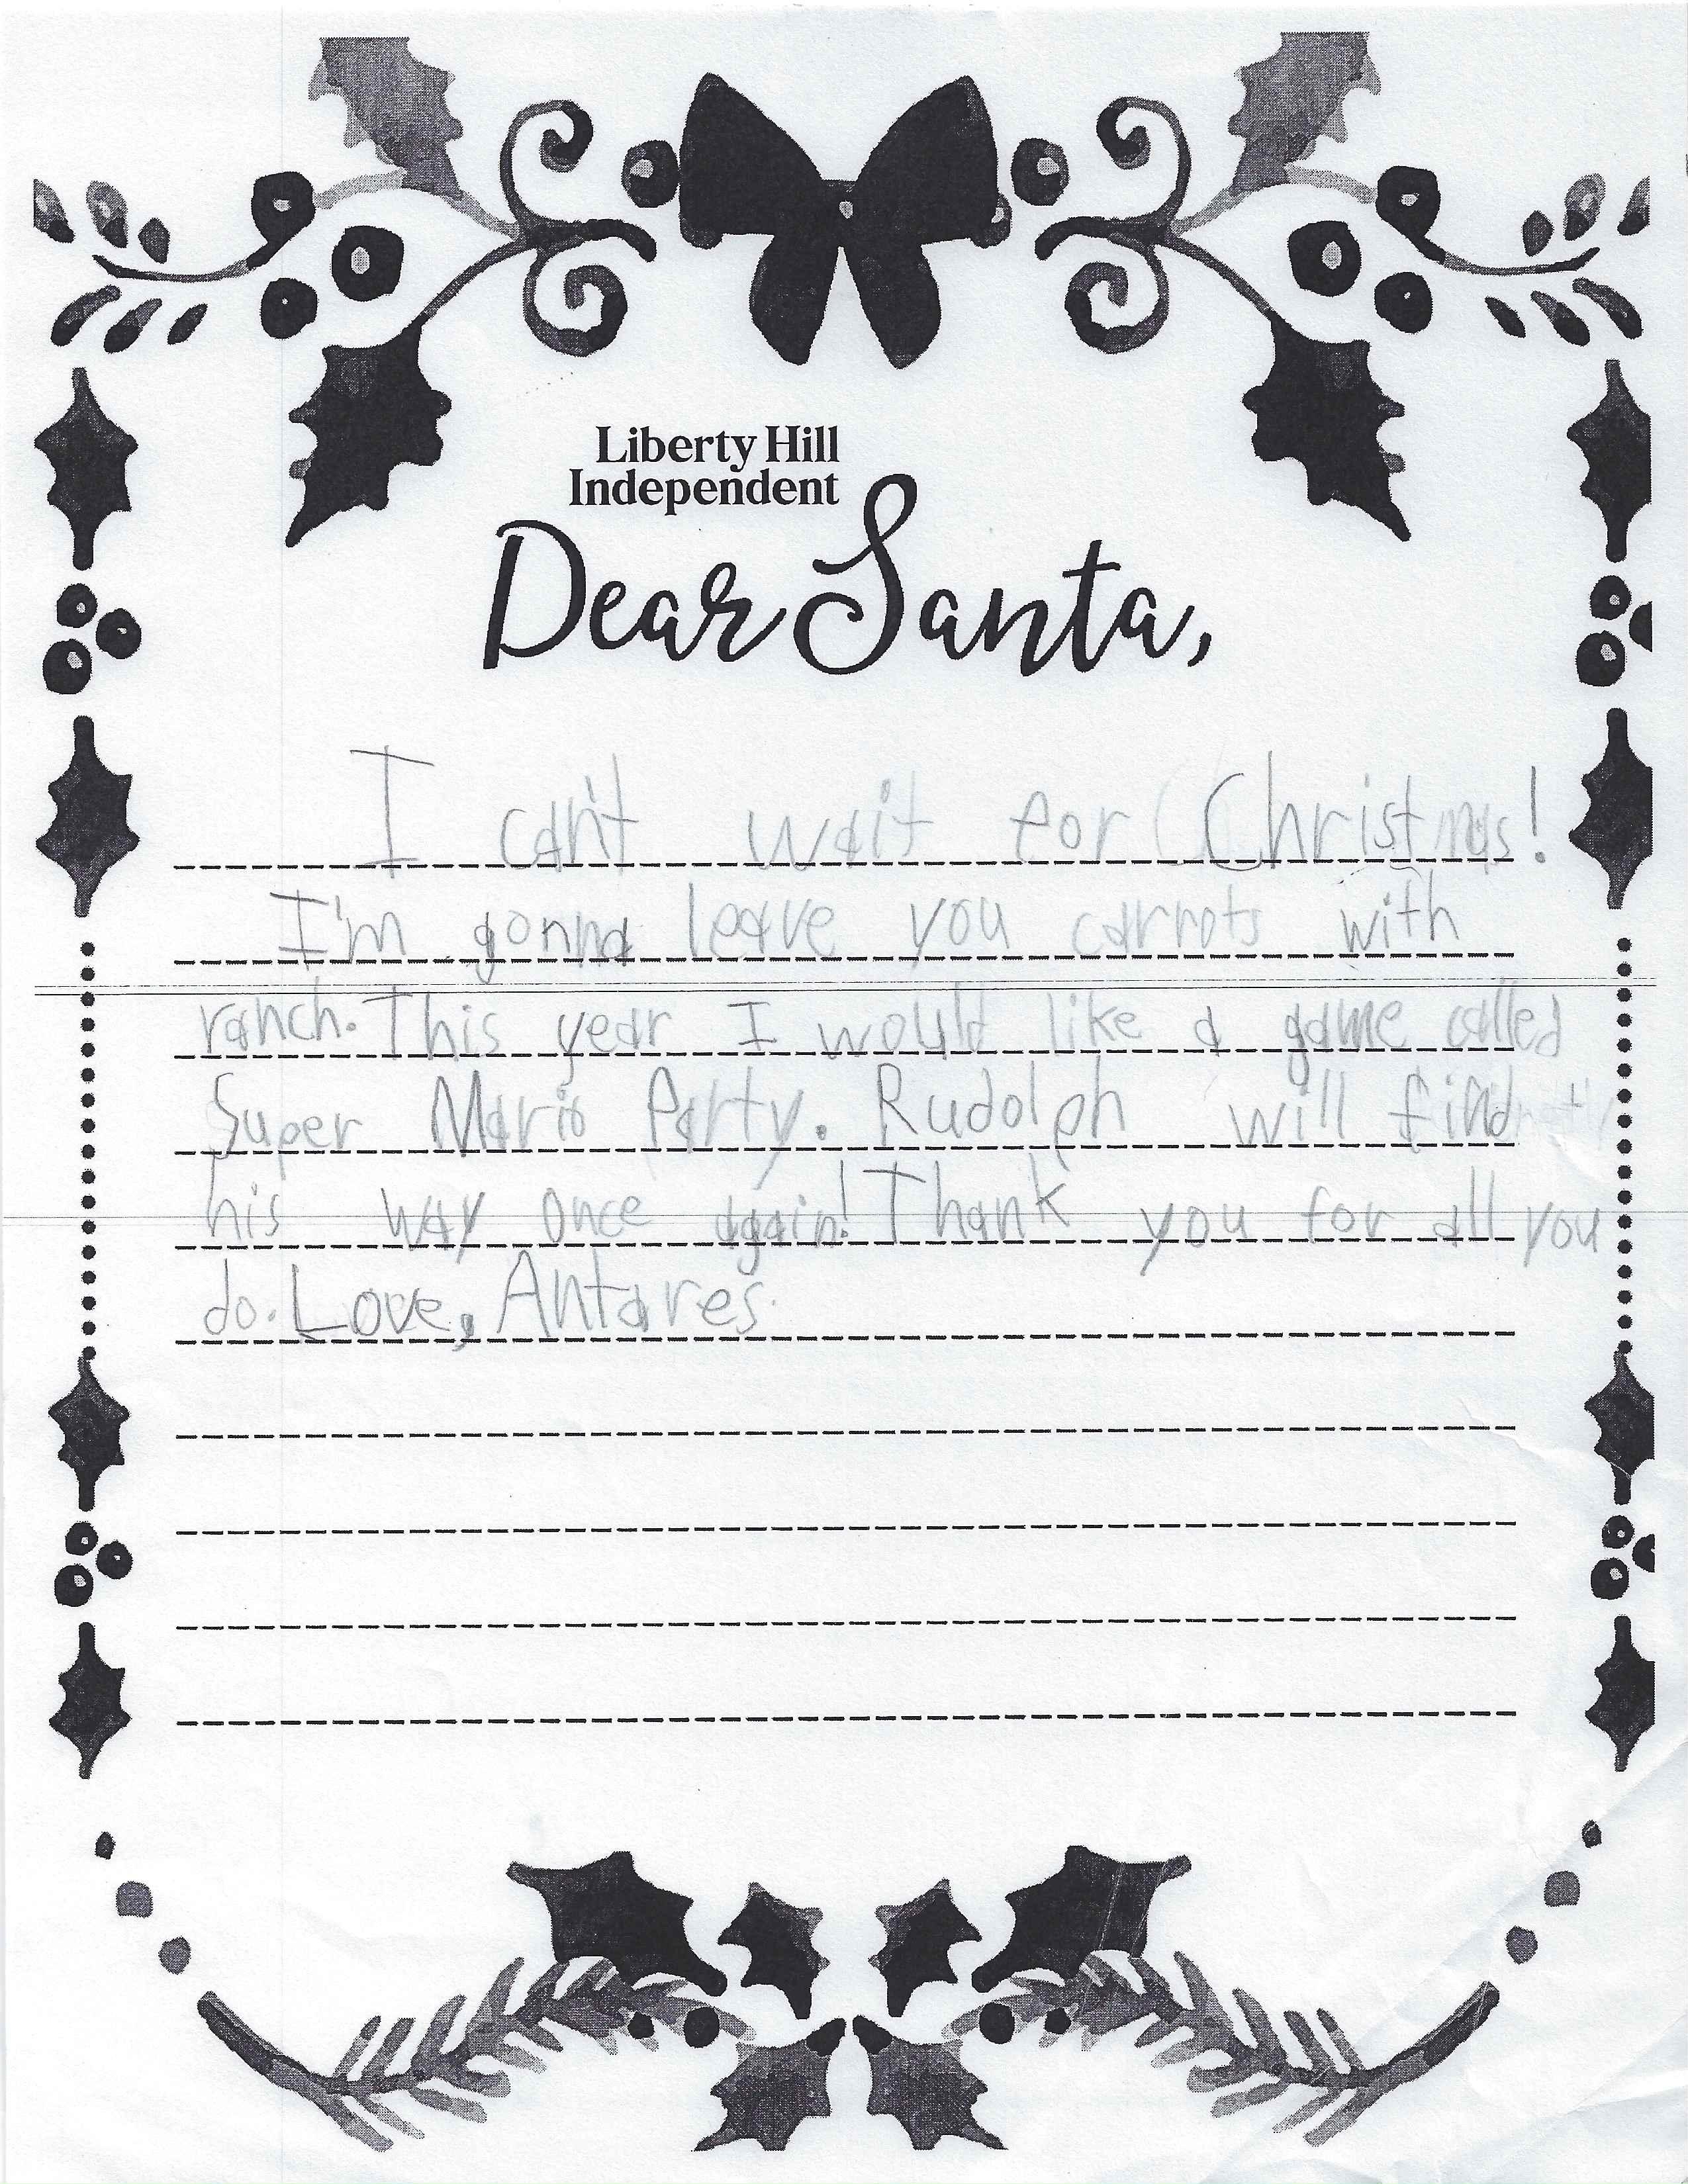 Liberty Hill
Independent
Dear Santa,
I can't wait for Christmas!
I'm gonna leave you carrots with
ranch. This year I would like a game called
Super Mario Party. Rudolph will find
his way once again! Thank you for all you
do. Love, Antares.